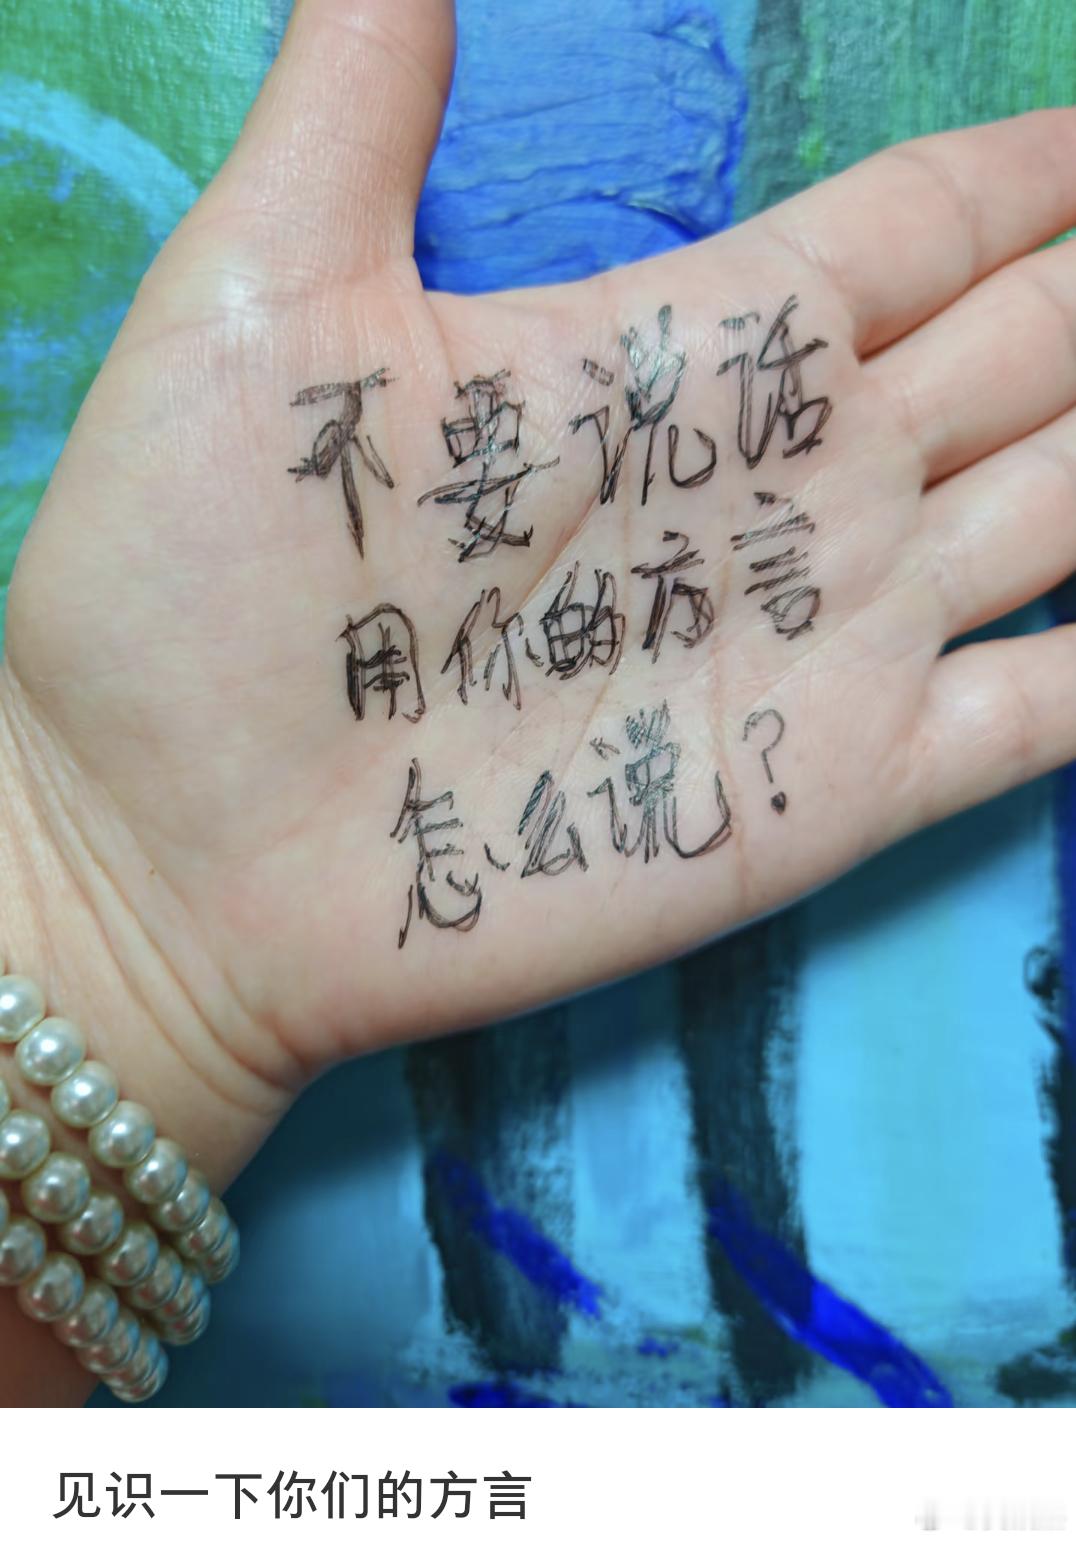 不要说话
用你的方言
怎么说?
见识一下你们的方言